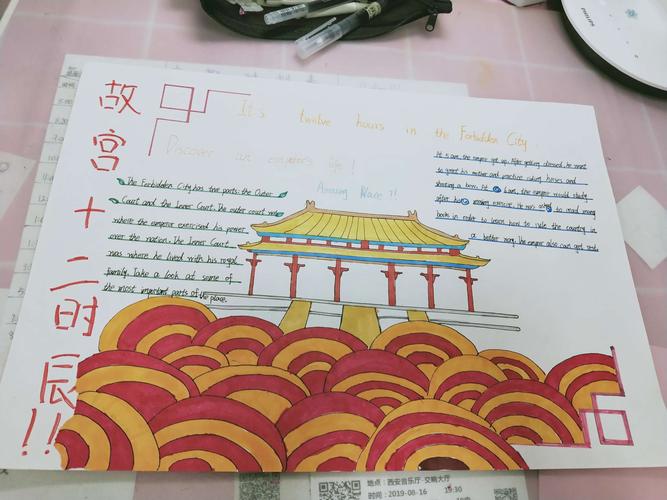 故宫十二时辰!!
It's twelve hours in the Forbidden City.
Discover an emperor's life!
Amazing Place!!
The Forbidden City has two parts: the Outer
Court and the Inner Court. The outer court was
where the emperor exercised his power
over the nation. The Inner Court
was where he lived with his royal
family. Take a look at some of
the most important parts of the place.
At 5 a.m. the emperor got up. After getting dressed, he went
to greet his mother and practice riding horses and
shooting a bow. At a.m. the emperor would study
after his morning exercise. He was asked to read many
books in order to learn how to rule the country in
a better way. The emperor also can get rest
PHILIPS
地点:西安音乐厅-交响大厅
时间:2019-08-16 19:30